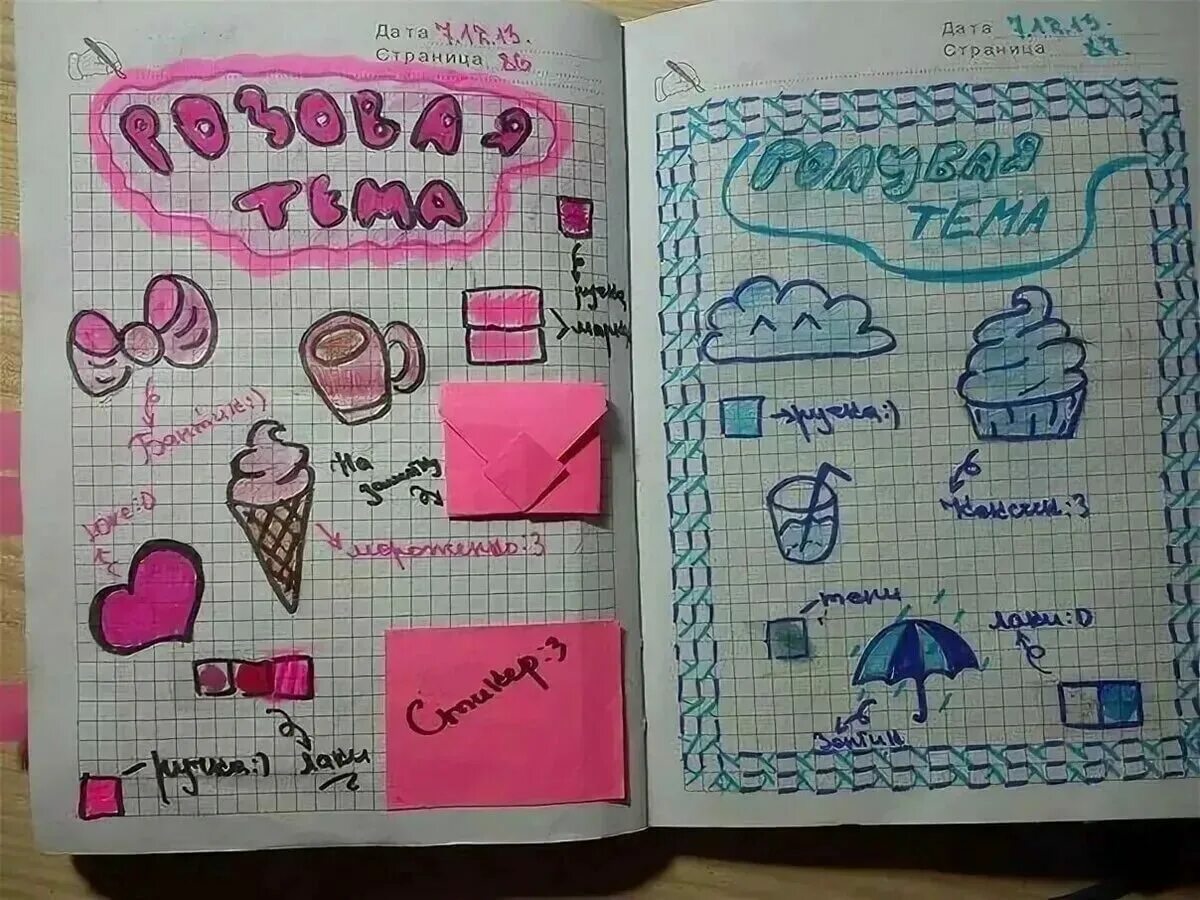 Дата 7.12.13.
Страница 86
РОЗОВАЯ
ТЕМА
ручка
Бантик:)
На
заметку
мороженко:3
Стикер:3
ручка:)
лаки
Дата 7.12.13.
Страница 87.
ГОЛУБАЯ
ТЕМА
ручка:)
Кексик:3
тени
лаки:D
Зонтик